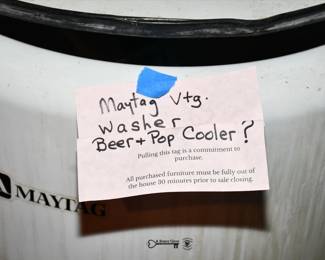 Maytag Vtg.
Washer
Beer + Pop Cooler?
Pulling this tag is a commitment to
purchase.
All purchased furniture must be fully out of
the house 30 minutes prior to sale closing.
MAYTAG